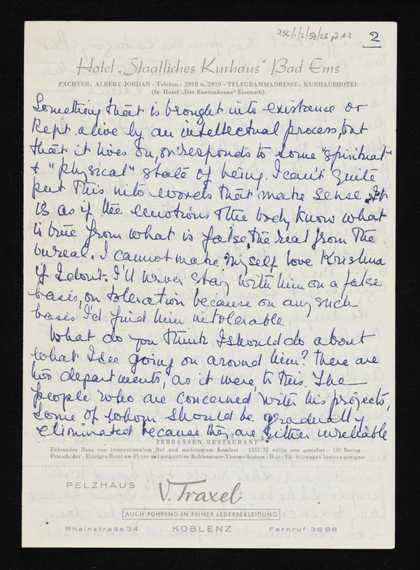 2
Hotel „Staatliches Kurhaus" Bad Ems
PÄCHTER: ALBERT JORDAN - Telefon: 2918 u. 2919 - TELEGRAMMADRESSE: KURHAUSHOTEL
Something that is brought into existence or
kept alive by an intellectual process, but
that it lives on, or responds to some "spiritual"
& "physical" state of being. I can't quite
put this into words that make sense. It
is as if the emotions & the body know what
is true from what is false, the real from the
unreal. I cannot make myself love Krishna
if I don't. I'll never stay with him on a false
basis, on toleration because on any such
basis I'd find him intolerable
What do you think I should do about
what I see going on around him? There are
two departments, as it were to this. The
people who are concerned with his projects,
some of whom should be gradually
eliminated because they are either unreliable
TERRASSEN-RESTAURANT
PELZHAUS
V. Traxel
AUCH FÜHREND IN FEINER LEDERBEKLEIDUNG
Rheinstraße 34 KOBLENZ Fernruf 3698